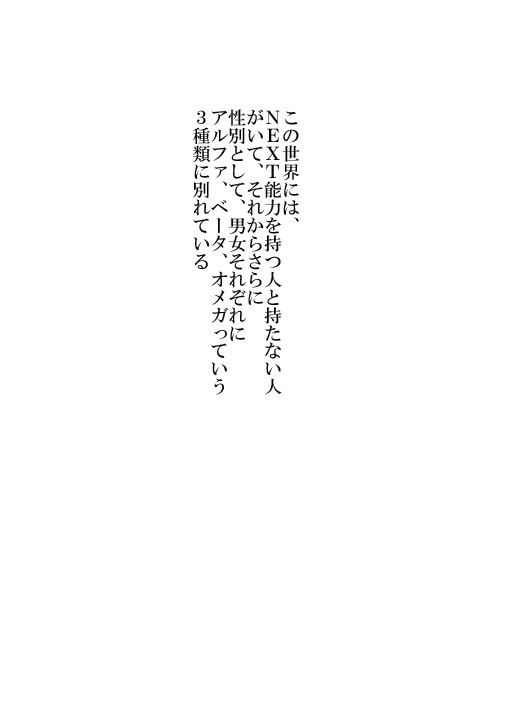 この世界には、
ＮＥＸＴ能力を持つ人と持たない人
がいて、それからさらに
性別として、男女それぞれに
アルファ、ベータ、オメガっていう
３種類に別れている